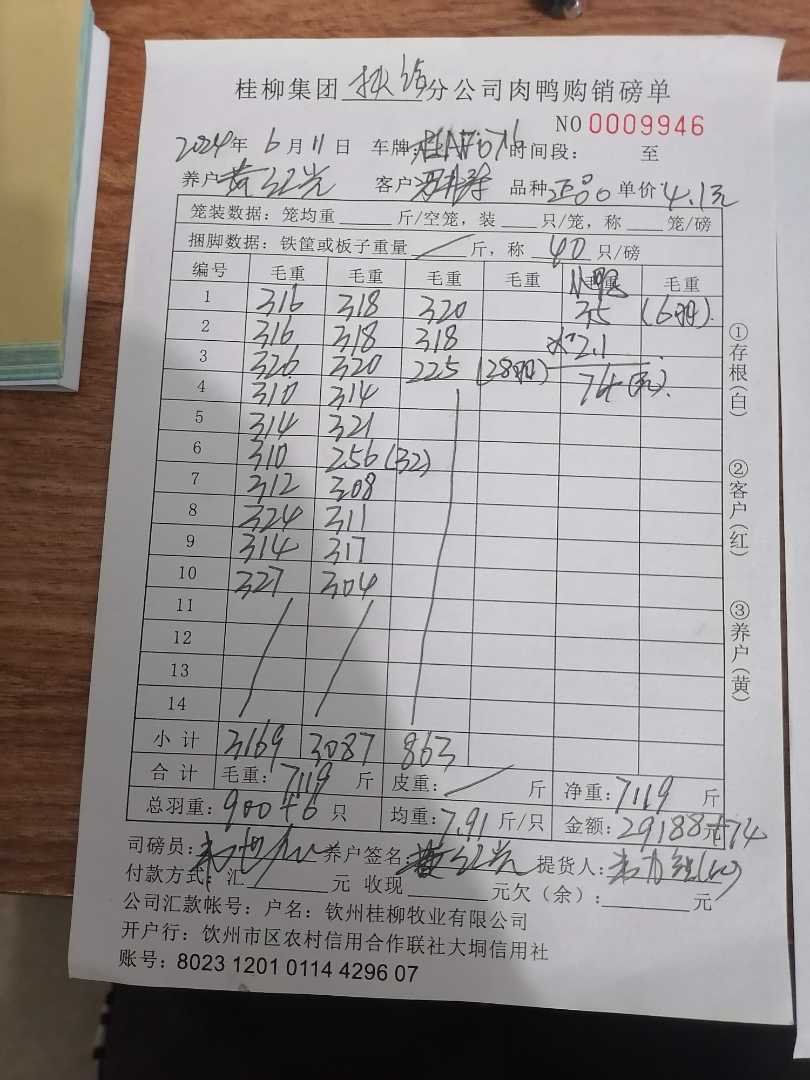 桂柳集团 钦结 分公司肉鸭购销磅单
NO 0009946
2024年 6 月 11 日 车牌: 时间段: 至
养户 黄红光 客户 品种 正品 单价 4.1元
笼装数据: 笼均重 斤/空笼, 装 只/笼, 称 笼/磅
捆脚数据: 铁筐或板子重量 / 斤, 称 40 只/磅
编号 毛重 毛重 毛重 毛重 毛重 毛重
1 316 318 320 35 (6羽).
2 316 318 318 ×2.1
3 326 320 225 (28羽) 74(元).
4 310 314
5 314 321
6 310 256 (32)
7 312 308
8 324 311
9 314 317
10 327 304
11
12
13
14
小计 3169 3087 863
合计 毛重: 7119 斤 皮重: / 斤 净重: 7119 斤
总羽重: 900+6 只 均重: 7.91 斤/只 金额: 29188元+74
司磅员: 养户签名: 黄红光 提货人:
付款方式: 汇 元 收现 元欠(余): 元
公司汇款帐号: 户名: 钦州桂柳牧业有限公司
开户行: 饮州市区农村信用合作联社大垌信用社
账号: 8023 1201 0114 4296 07
①存根(白)
②客户(红)
③养户(黄)